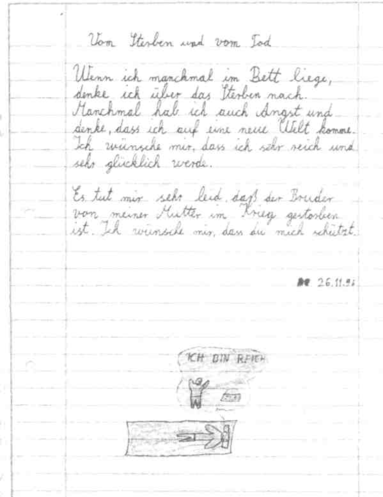 Vom Sterben und vom Tod
Wenn ich manchmal im Bett liege,
denke ich über das Sterben nach.
Manchmal hab ich auch Angst und
denke, dass ich auf eine neue Welt komme.
Ich wünsche mir, dass ich sehr reich und
sehr glücklich werde.
Es tut mir sehr leid, daß der Bruder
von meiner Mutter im Krieg gestorben
ist. Ich wünsche mir, dass du mich schützt.
26.11.93
ICH BIN REICH